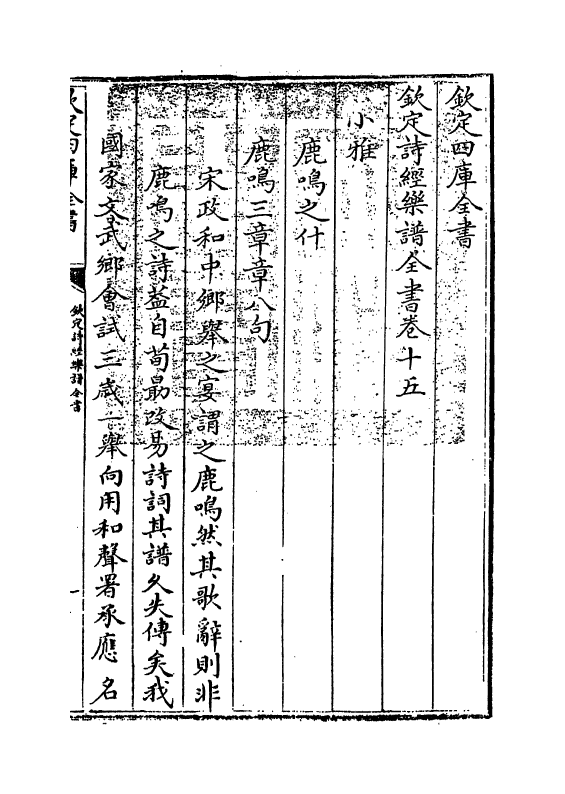 欽定四庫全書
欽定詩經樂譜全書卷十五
小雅
鹿鳴之什
鹿鳴三章章八句
宋政和中鄉舉之宴謂之鹿鳴然其歌辭則非
鹿鳴之詩蓋自荀勗改易詩詞其譜久失傳矣我
國家文武鄉會試三歲一舉向用和聲署承應名
欽定四庫全書
欽定詩經樂譜全書
一